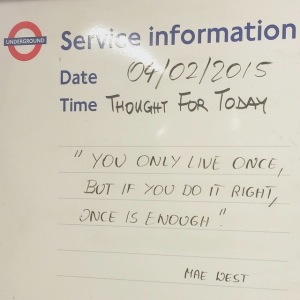 UNDERGROUND
Service information
Date 04/02/2015
Time THOUGHT FOR TODAY
"YOU ONLY LIVE ONCE,
BUT IF YOU DO IT RIGHT,
ONCE IS ENOUGH".
MAE WEST